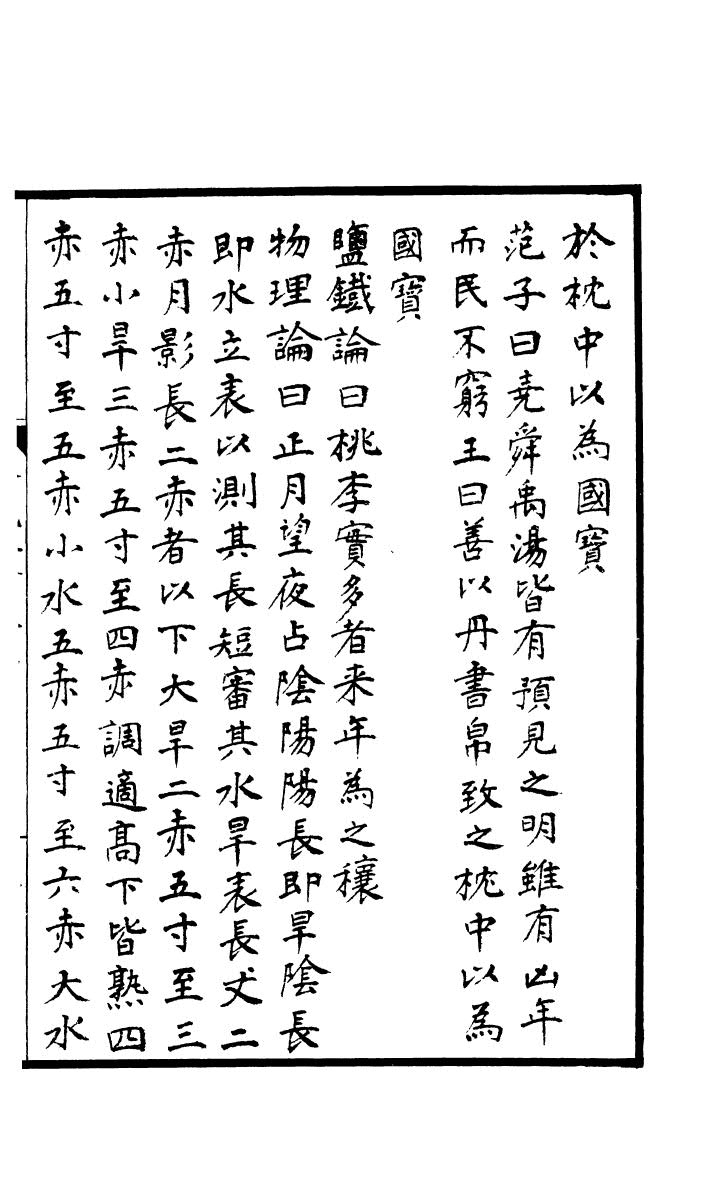 於枕中以為國寶
范子曰尭舜禹湯皆有預見之明雖有凶年
而民不窮王曰善以丹書帛致之枕中以為
國寶
鹽鐵論曰桃李實多者来年為之穰
物理論曰正月望夜占陰陽陽長即旱陰長
即水立表以測其長短審其水旱表長丈二
赤月影長二赤者以下大旱二赤五寸至三
赤小旱三赤五寸至四赤調適髙下皆熟四
赤五寸至五赤小水五赤五寸至六赤大水